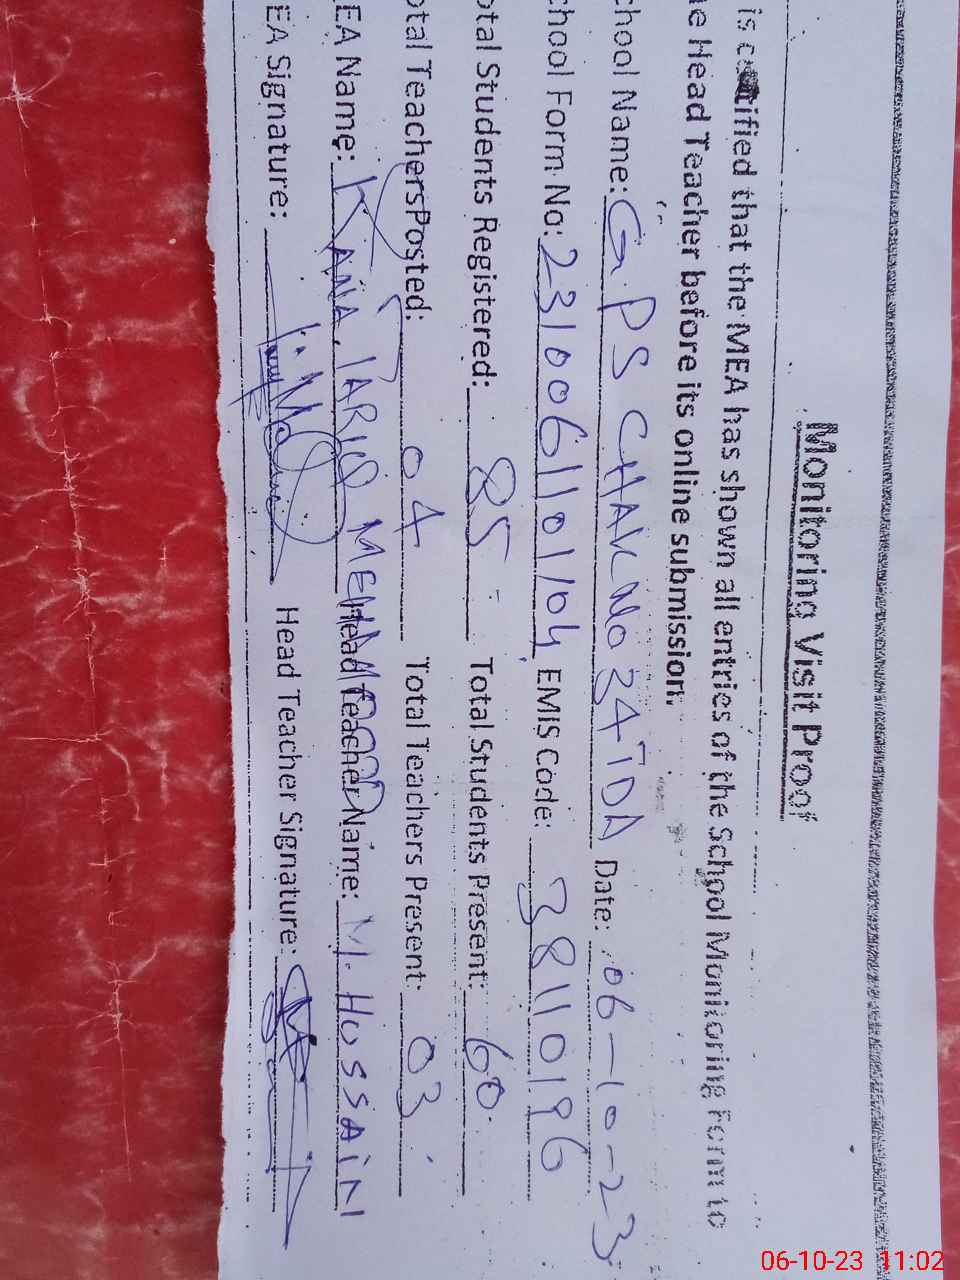 Monitoring Visit Proof
is certified that the MEA has shown all entries of the School Monitoring Form to
he Head Teacher before its online submission.
chool Name: G.PS CHAK NO 34 TDA Date: 06-10-23
chool Form No: 2310061101104 EMIS Code: 38110196
otal Students Registered: 85 Total Students Present: 60
otal Teachers Posted: 04 Total Teachers Present: 03
EA Name: RANA TARIQ MEHMOOD Head Teacher Name: M. HUSSAIN
EA Signature: Head Teacher Signature:
06-10-23 11:02